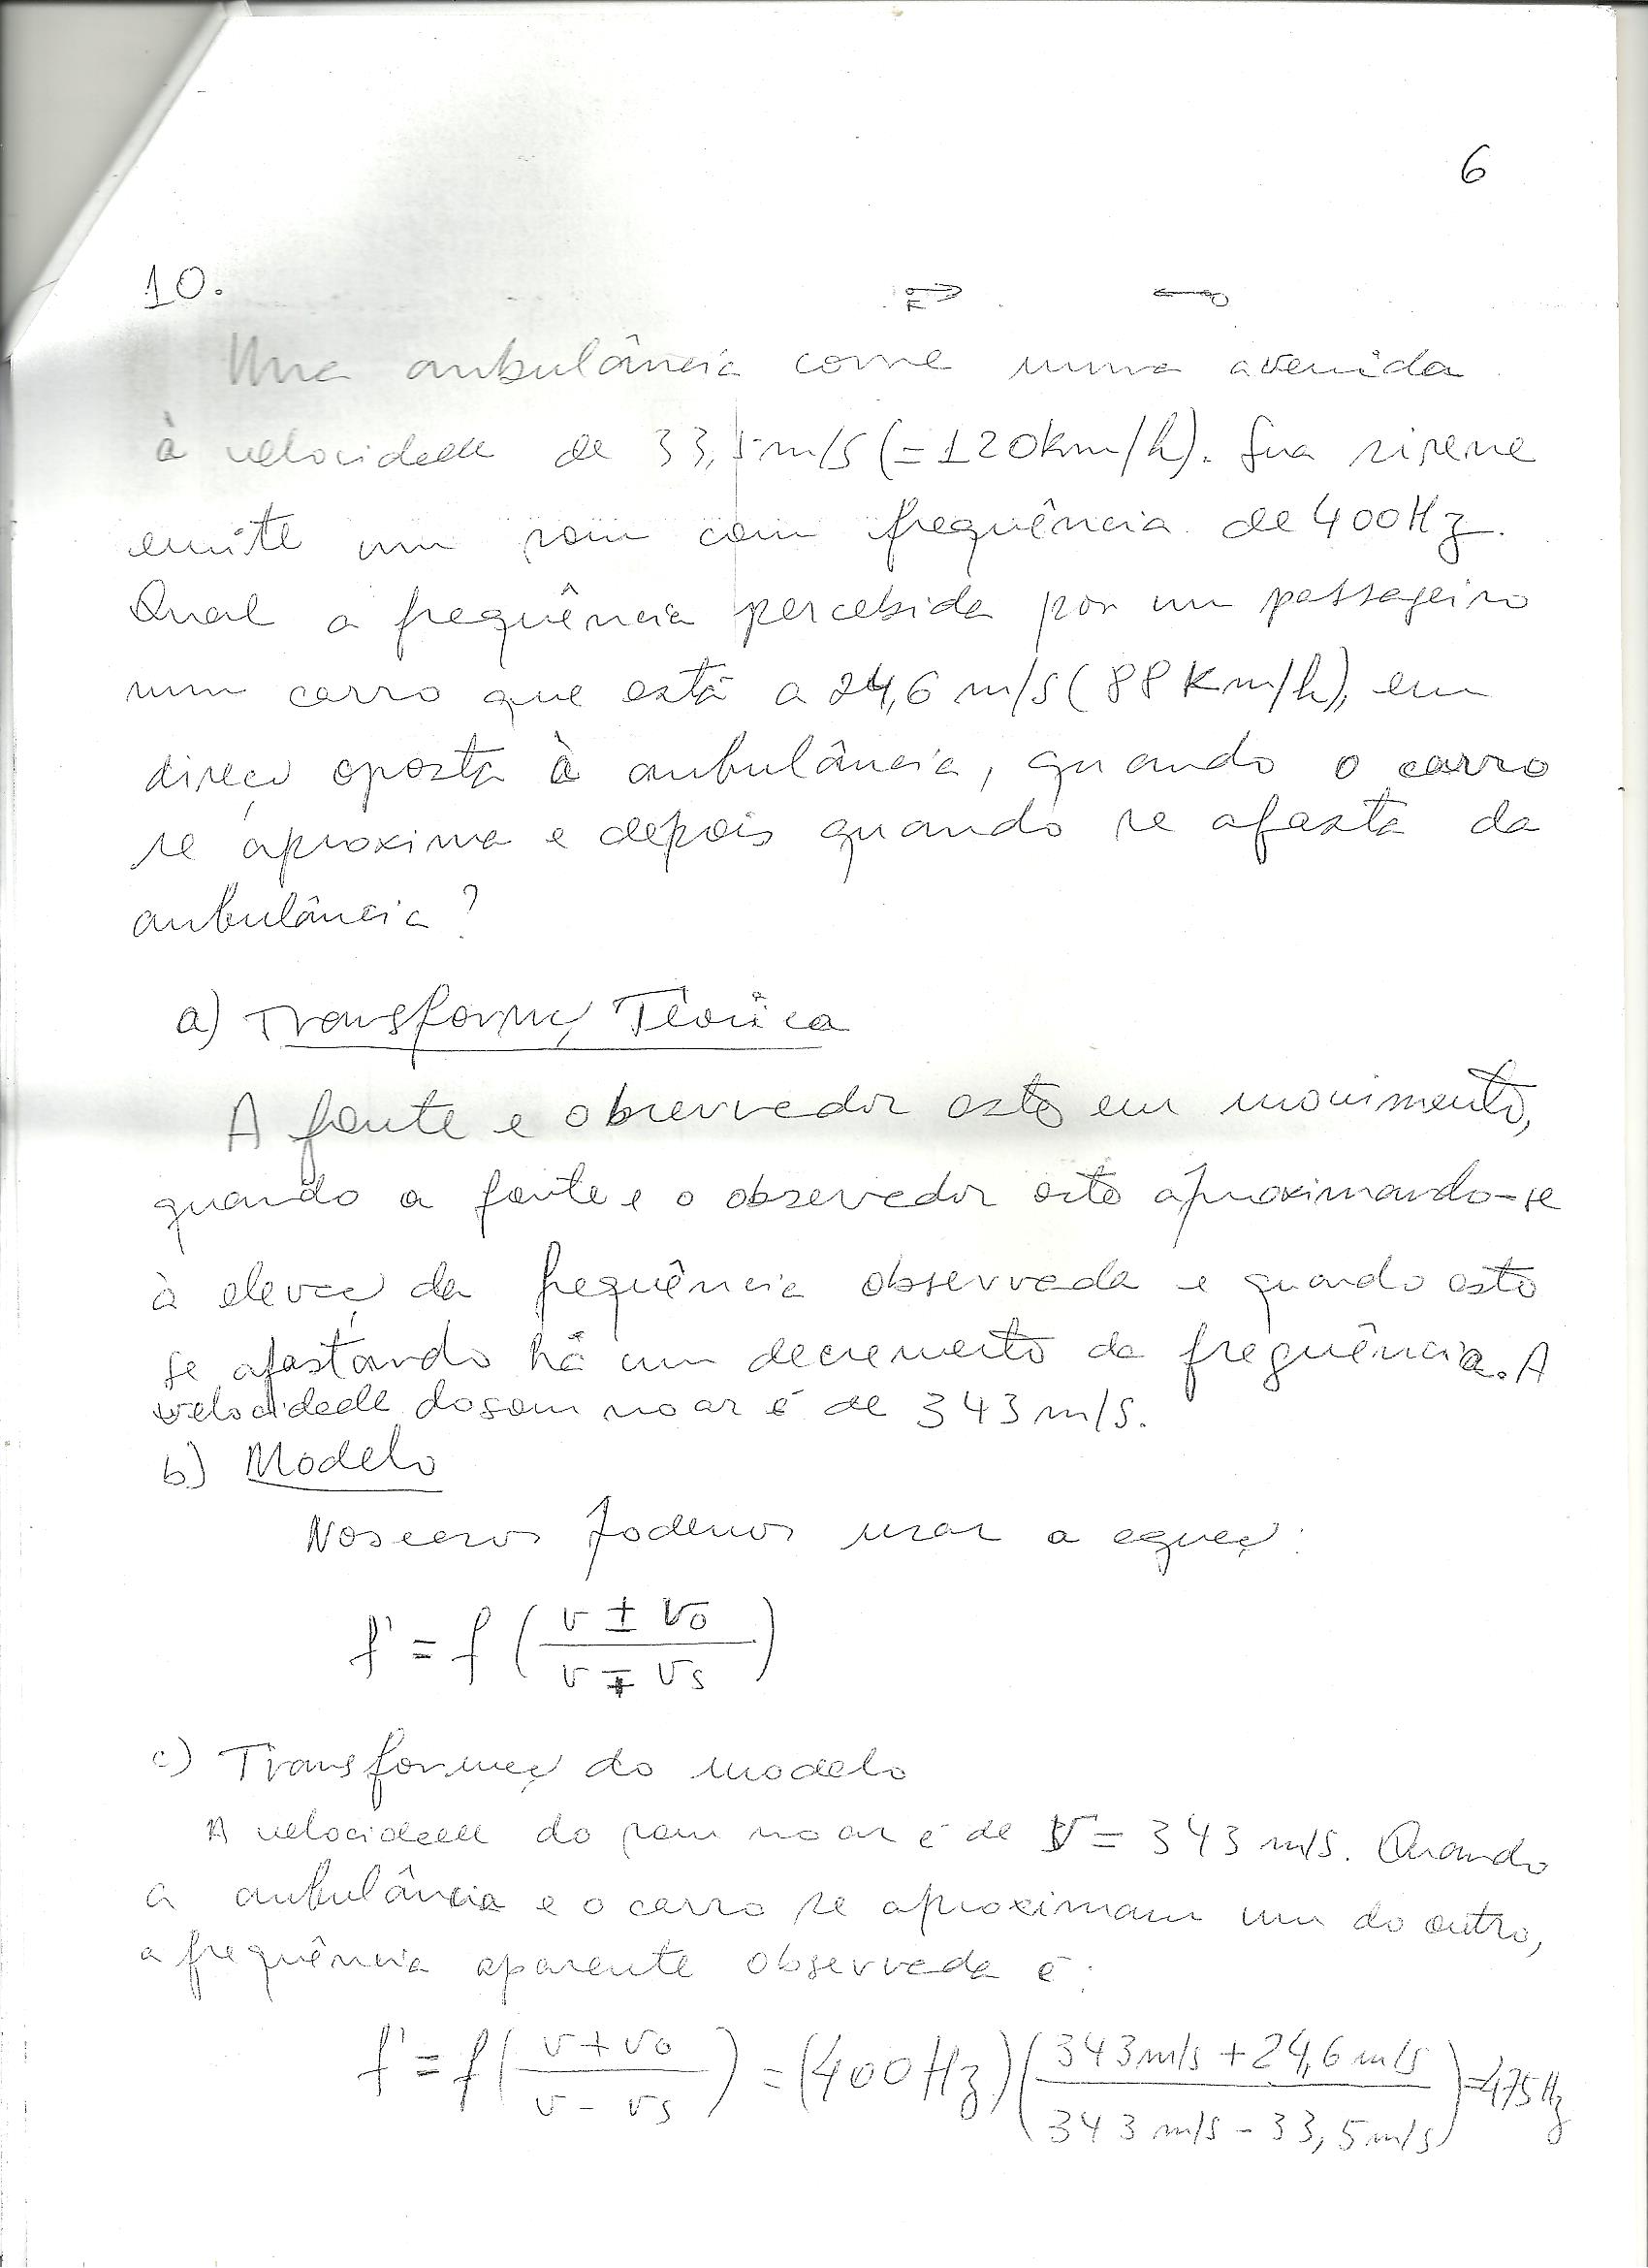 6
10.
Uma ambulância corre numa avenida
à velocidade de 33,5 m/s (=120km/h). Sua sirene
emite um som com frequência de 400Hz.
Qual a frequência percebida por um passageiro
num carro que está a 24,6 m/s (88Km/h), em
direç oposta à ambulância, quando o carro
se aproxima e depois quando se afasta da
ambulância?
a) Transformaç Teórica
A fonte e observador esto em movimento,
quando a fonte e o observador esto aproximando-se
à elevaç da frequência observada e quando esto
se afastando há um decremento da frequência. A
velocidade do som no ar é de 343 m/s.
b) Modelo
Nos casos podemos usar a equaç:
f' = f ( v ± vo / v ∓ vs )
c) Transformaç do modelo
A velocidade do som no ar é de V = 343 m/s. Quando
a ambulância e o carro se aproximam um do outro,
a frequência aparente observada é:
f' = f ( v + vo / v - vs ) = (400Hz) ( 343m/s + 24,6 m/s / 343 m/s - 33,5m/s ) = 475Hz